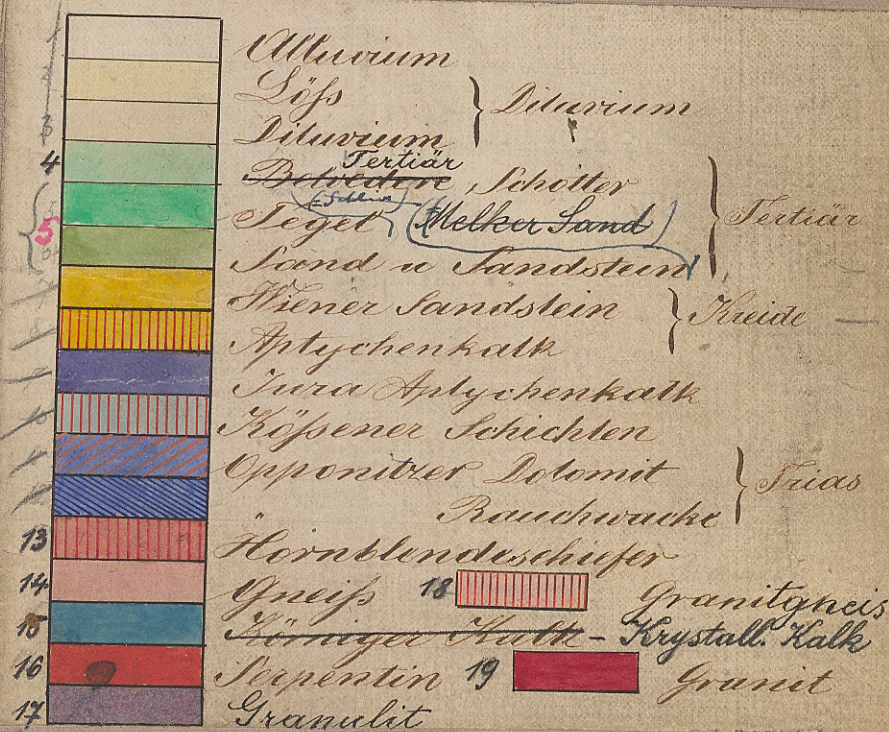 Alluvium
Löß } Diluvium
Diluvium
4 Tertiär
Belvedere, Schotter } Tertiär
(= Schlier)
5 Tegel (Melker Sand)
Sand u Sandstein
Wiener Sandstein } Kreide
Aptychenkalk
Jura Aptychenkalk
Kößener Schichten
Opponitzer Dolomit } Trias
" Rauchwacke
13 Hornblendeschiefer
14 Gneiß 18 Granitgneis
15 Körniger Kalk - Krystall. Kalk
16 Serpentin 19 Granit
17 Granulit